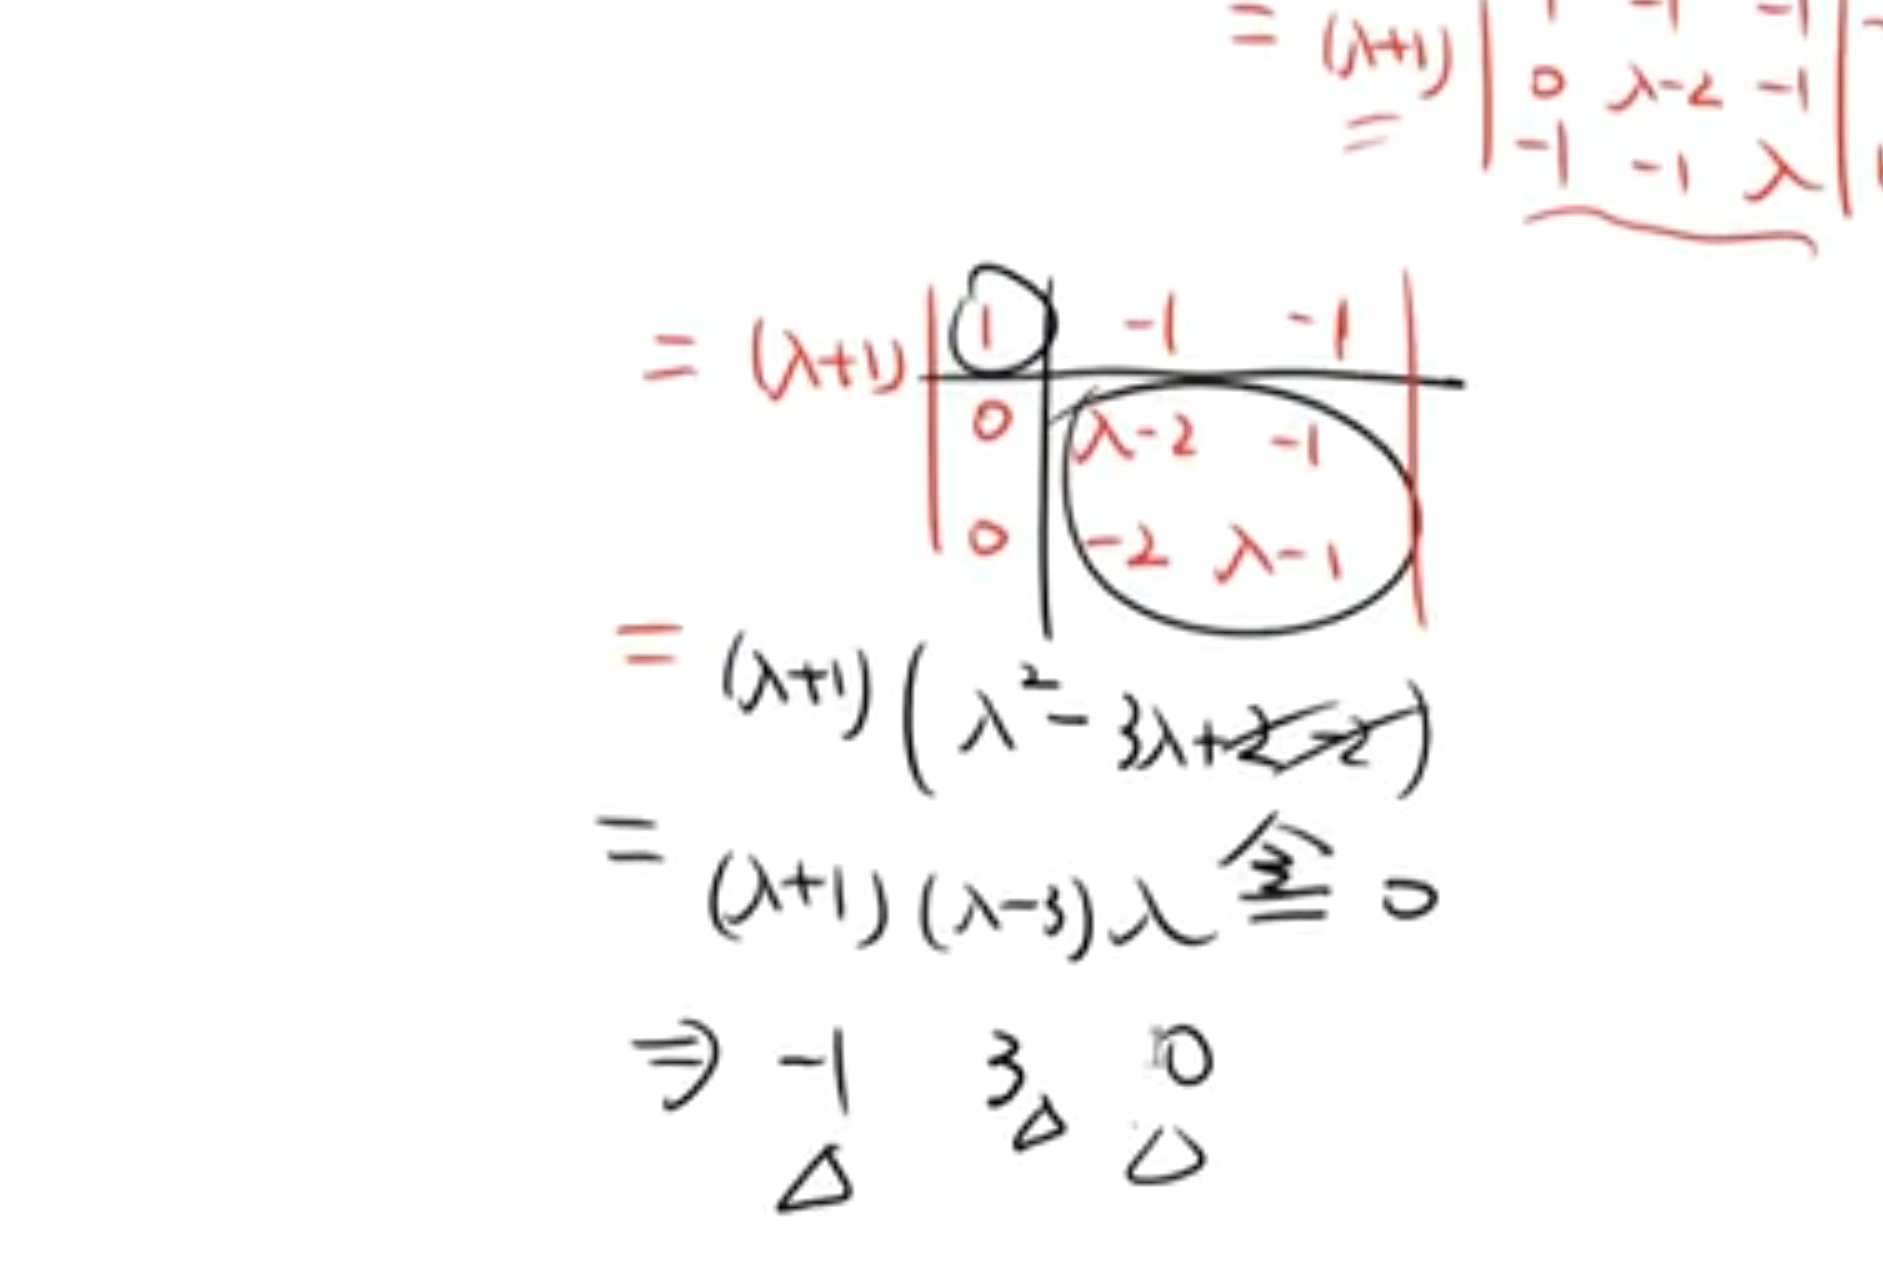 = (λ+1) | 1 -1 -1 |
0 λ-2 -1
= -1 -1 λ
= (λ+1) | 1 -1 -1 |
0 λ-2 -1
0 -2 λ-1
= (λ+1)(λ²-3λ+2-2)
= (λ+1)(λ-3)λ 令= 0
⇒ -1 3 0